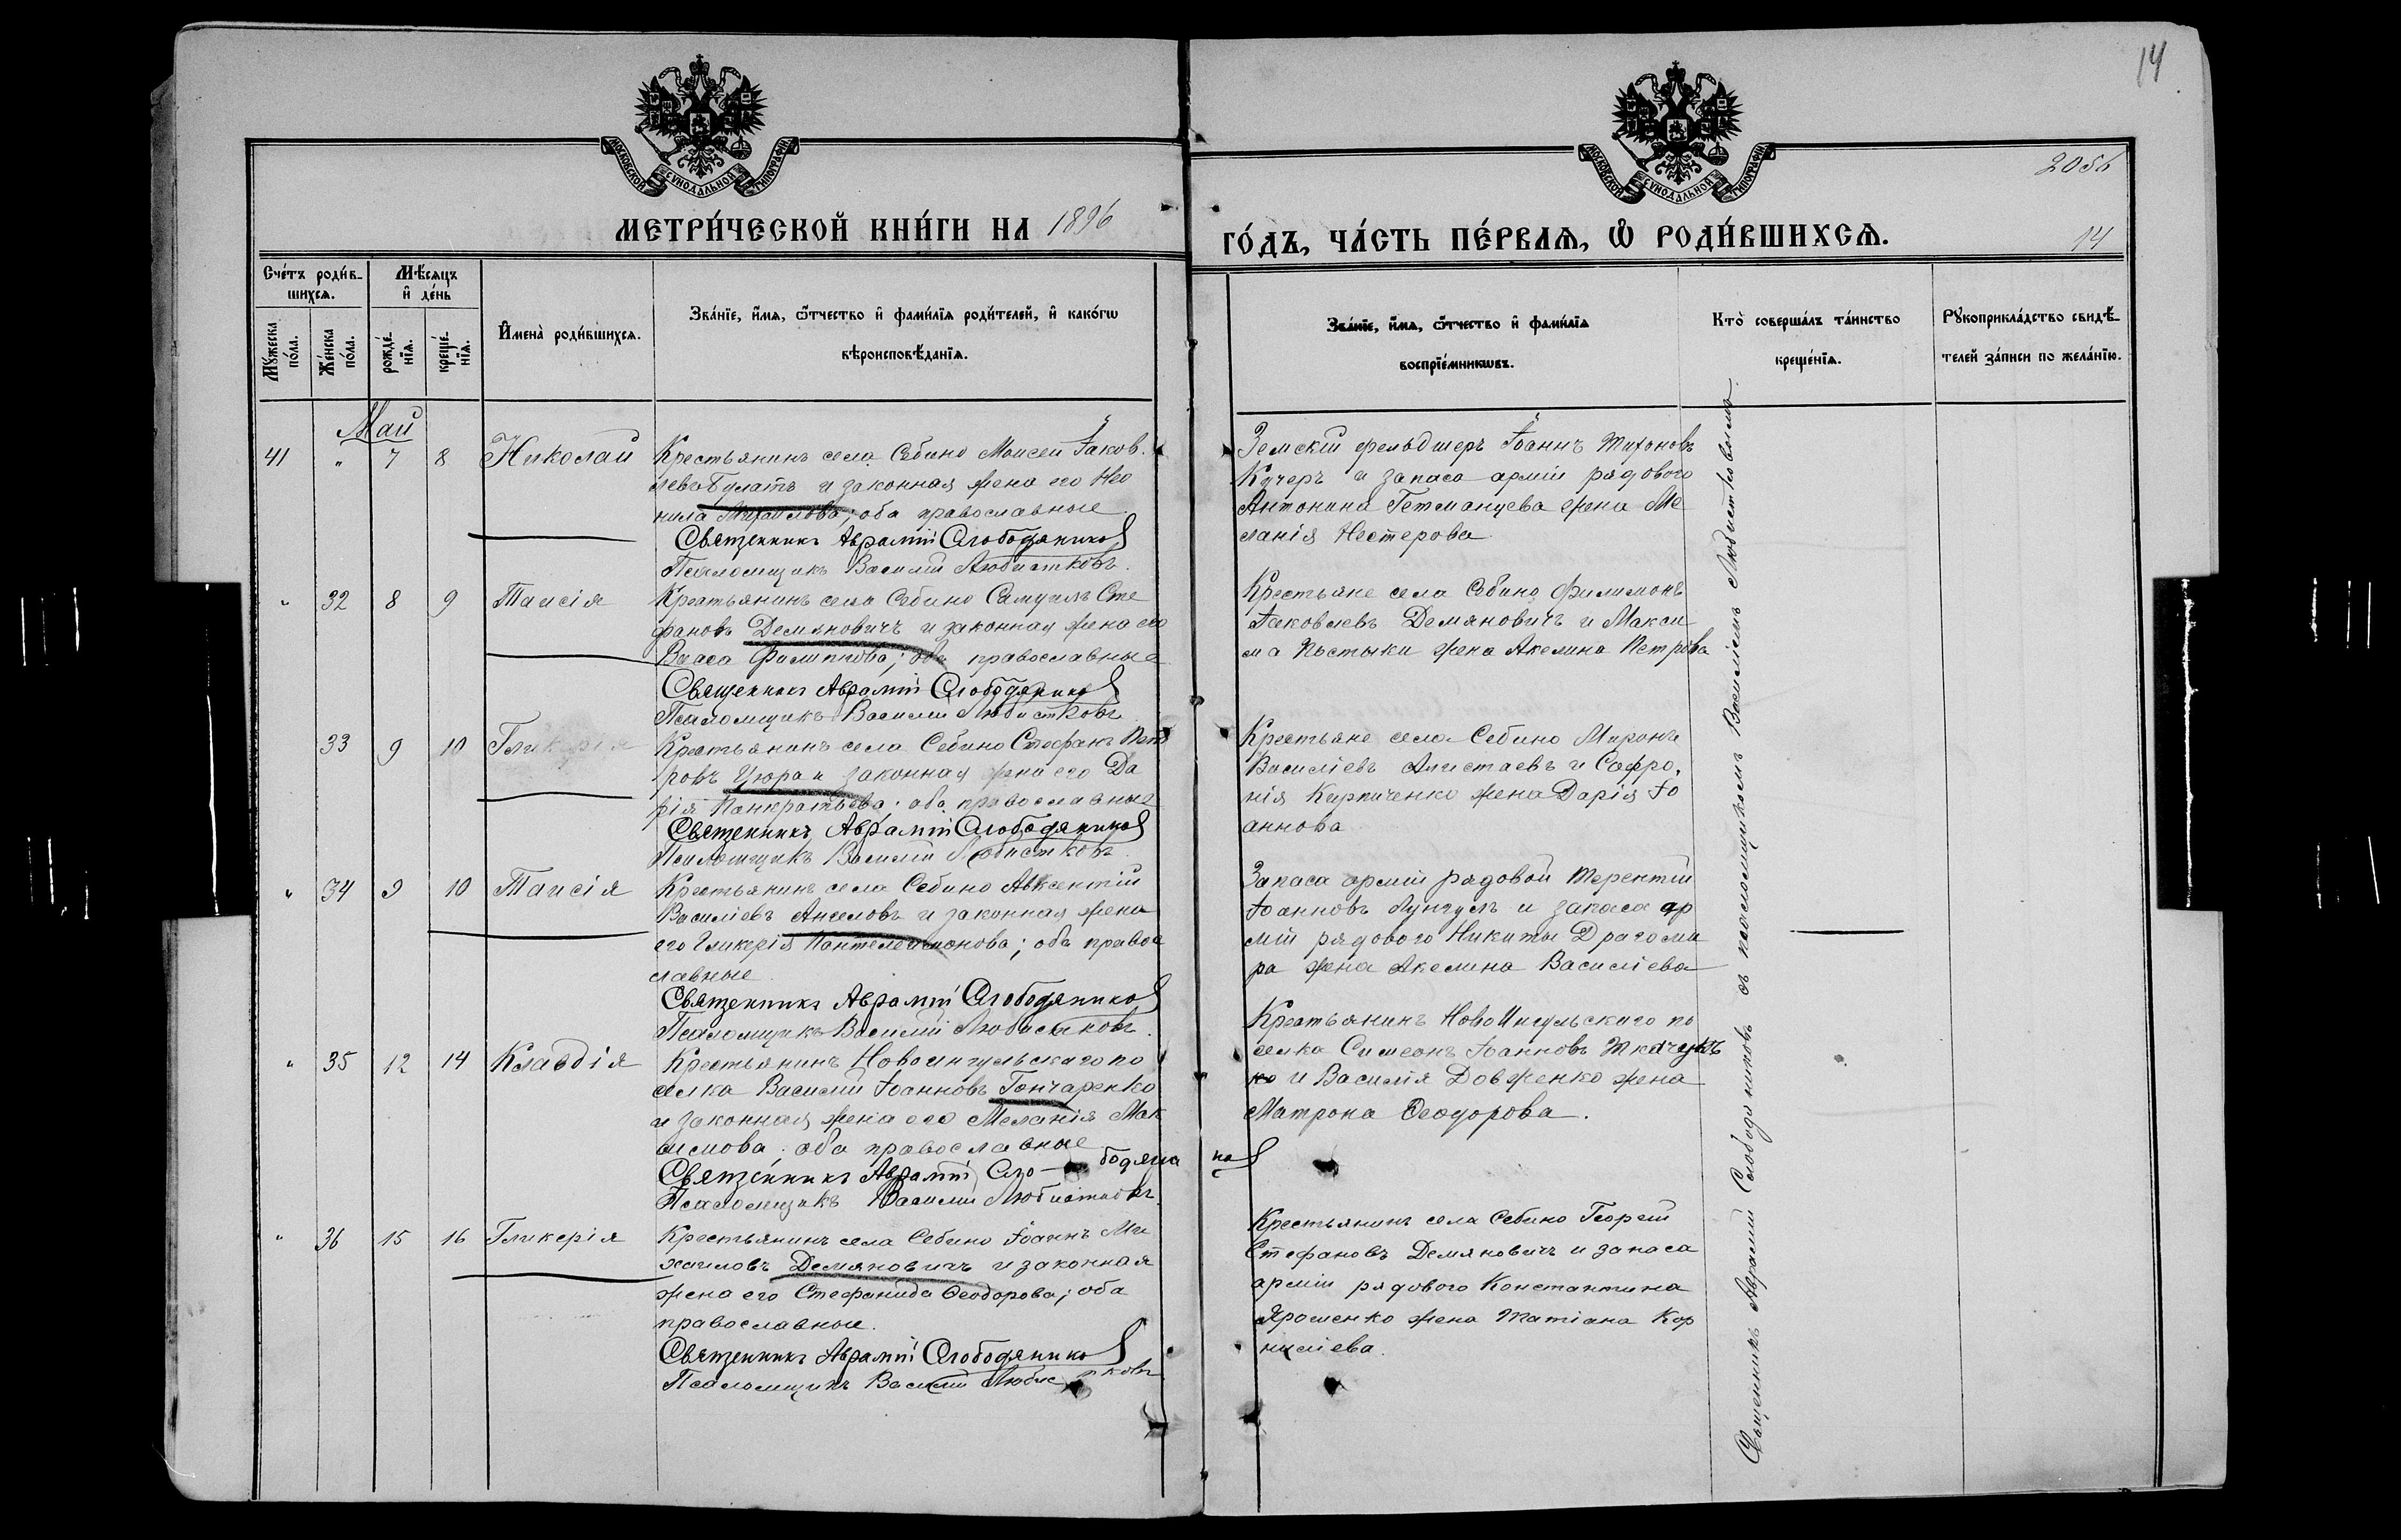 14
МОСКОВСКОЙ СУНОДАЛЬНОЙ ТИПОГРАФІИ
МОСКОВСКОЙ СУНОДАЛЬНОЙ ТИПОГРАФІИ
2056
МЕТРИ́ЧЕСКОЙ КНИ́ГИ НА 1896
ГО́ДЪ, ЧА́СТЬ ПЕ́РВАѦ, Ѡ҆ РОДИ́ВШИХСѦ.
14
Сче́тъ роди́в-
шихсѧ.
Мꙋжеска по́ла.
Же́нска по́ла.
Мѣ́сѧцъ
и҆ де́нь
рожде́-
нїѧ.
креще́-
нїѧ.
И҆мена̀ роди́вшихсѧ.
Зва́нїе, и҆́мѧ, ѻ҆́тчество и҆ фами́лїѧ роди́телей, и҆ како́гѡ
вѣроисповѣ́данїѧ.
Зва́нїе, и҆́мѧ, ѻ҆́тчество и҆ фами́лїѧ
воспрїе́мникѡвъ.
Кто̀ соверша́лъ та́инство
креще́нїѧ.
Рꙋкоприкла́дство свидѣ́-
телей за́писи по жела́нїю.
Май
41 " 7 8 Николай
Крестьянинъ села Себино Моисей Іаков.
левъ Булатъ и законная жена его Нео
нила Михаилова; оба православные
Священникъ Аврамій Слободяников
Псаломщикъ Василій Любистковъ.
Земскій фельдшеръ Іоаннъ Тихоновъ
Кучеръ и запаса арміи рядового
Антонина Гетманцева жена Ме
ланія Нестерова
" 32 8 9 Таисія
Крестьянинъ села Себино Самуилъ Сте
фановъ Демяновичъ и законная жена его
Васса Филиппова; оба православные
Священникъ Аврамій Слободяников
Псаломщикъ Василій Любистковъ
Крестьяне села Себино Филимонъ
Іаковлевъ Демяновичъ и Макси
ма жена Акелина Петрова
33 9 10 Гликерія
Крестьянинъ села Себино Стефанъ Пет
ровъ Цюра и законная жена его Да
рія Панкратьева; оба православные
Священникъ Аврамій Слободяников
Псаломщикъ Василій Любистковъ
Крестьяне села Себино Миронъ
Василіевъ и Софро,
нія Кирпиченко жена Дарія Іо
аннова
" 34 9 10 Таисія
Крестьянинъ села Себино Авксентій
Василіевъ Ангеловъ и законная жена
его Гликерія Пантелеимонова; оба право
славные
Священникъ Аврамій Слободяников
Псаломщикъ Василій Любистковъ.
Запаса арміи рядовой Терентій
Іоанновъ Лунгулъ и запаса ар
міи рядового Никиты Драгоми
ра жена Акелина Василіева
" 35 12 14 Клавдія
Крестьянинъ Новоингульскаго по
селка Василій Іоанновъ Гончаренко
и законная жена его Меланія Мак
симова; оба православные
Священникъ Аврамій Сло- бодяни ков
Псаломщикъ Василій Любистковъ
Крестьянинъ НовоИнгульскаго по
селка Симеонъ Іоанновъ
и Василія Довженко жена
Матрона Ѳеодорова.
" 36 15 16 Гликерія
Крестьянинъ села Себино Іоаннъ Ми
хаиловъ Демяновичъ и законная
жена его Стефанида Ѳеодорова; оба
православные.
Священникъ Аврамій Слободяников
Псаломщикъ Василій Любистковъ
Крестьянинъ села Себино Георгій
Стефановъ Демяновичъ и запаса
арміи рядового Константина
Ярошенко жена Татіана Кор
ниліева.
Священникъ Аврамій Слободяниковъ съ псаломщикомъ Василіемъ Любистковымъ.